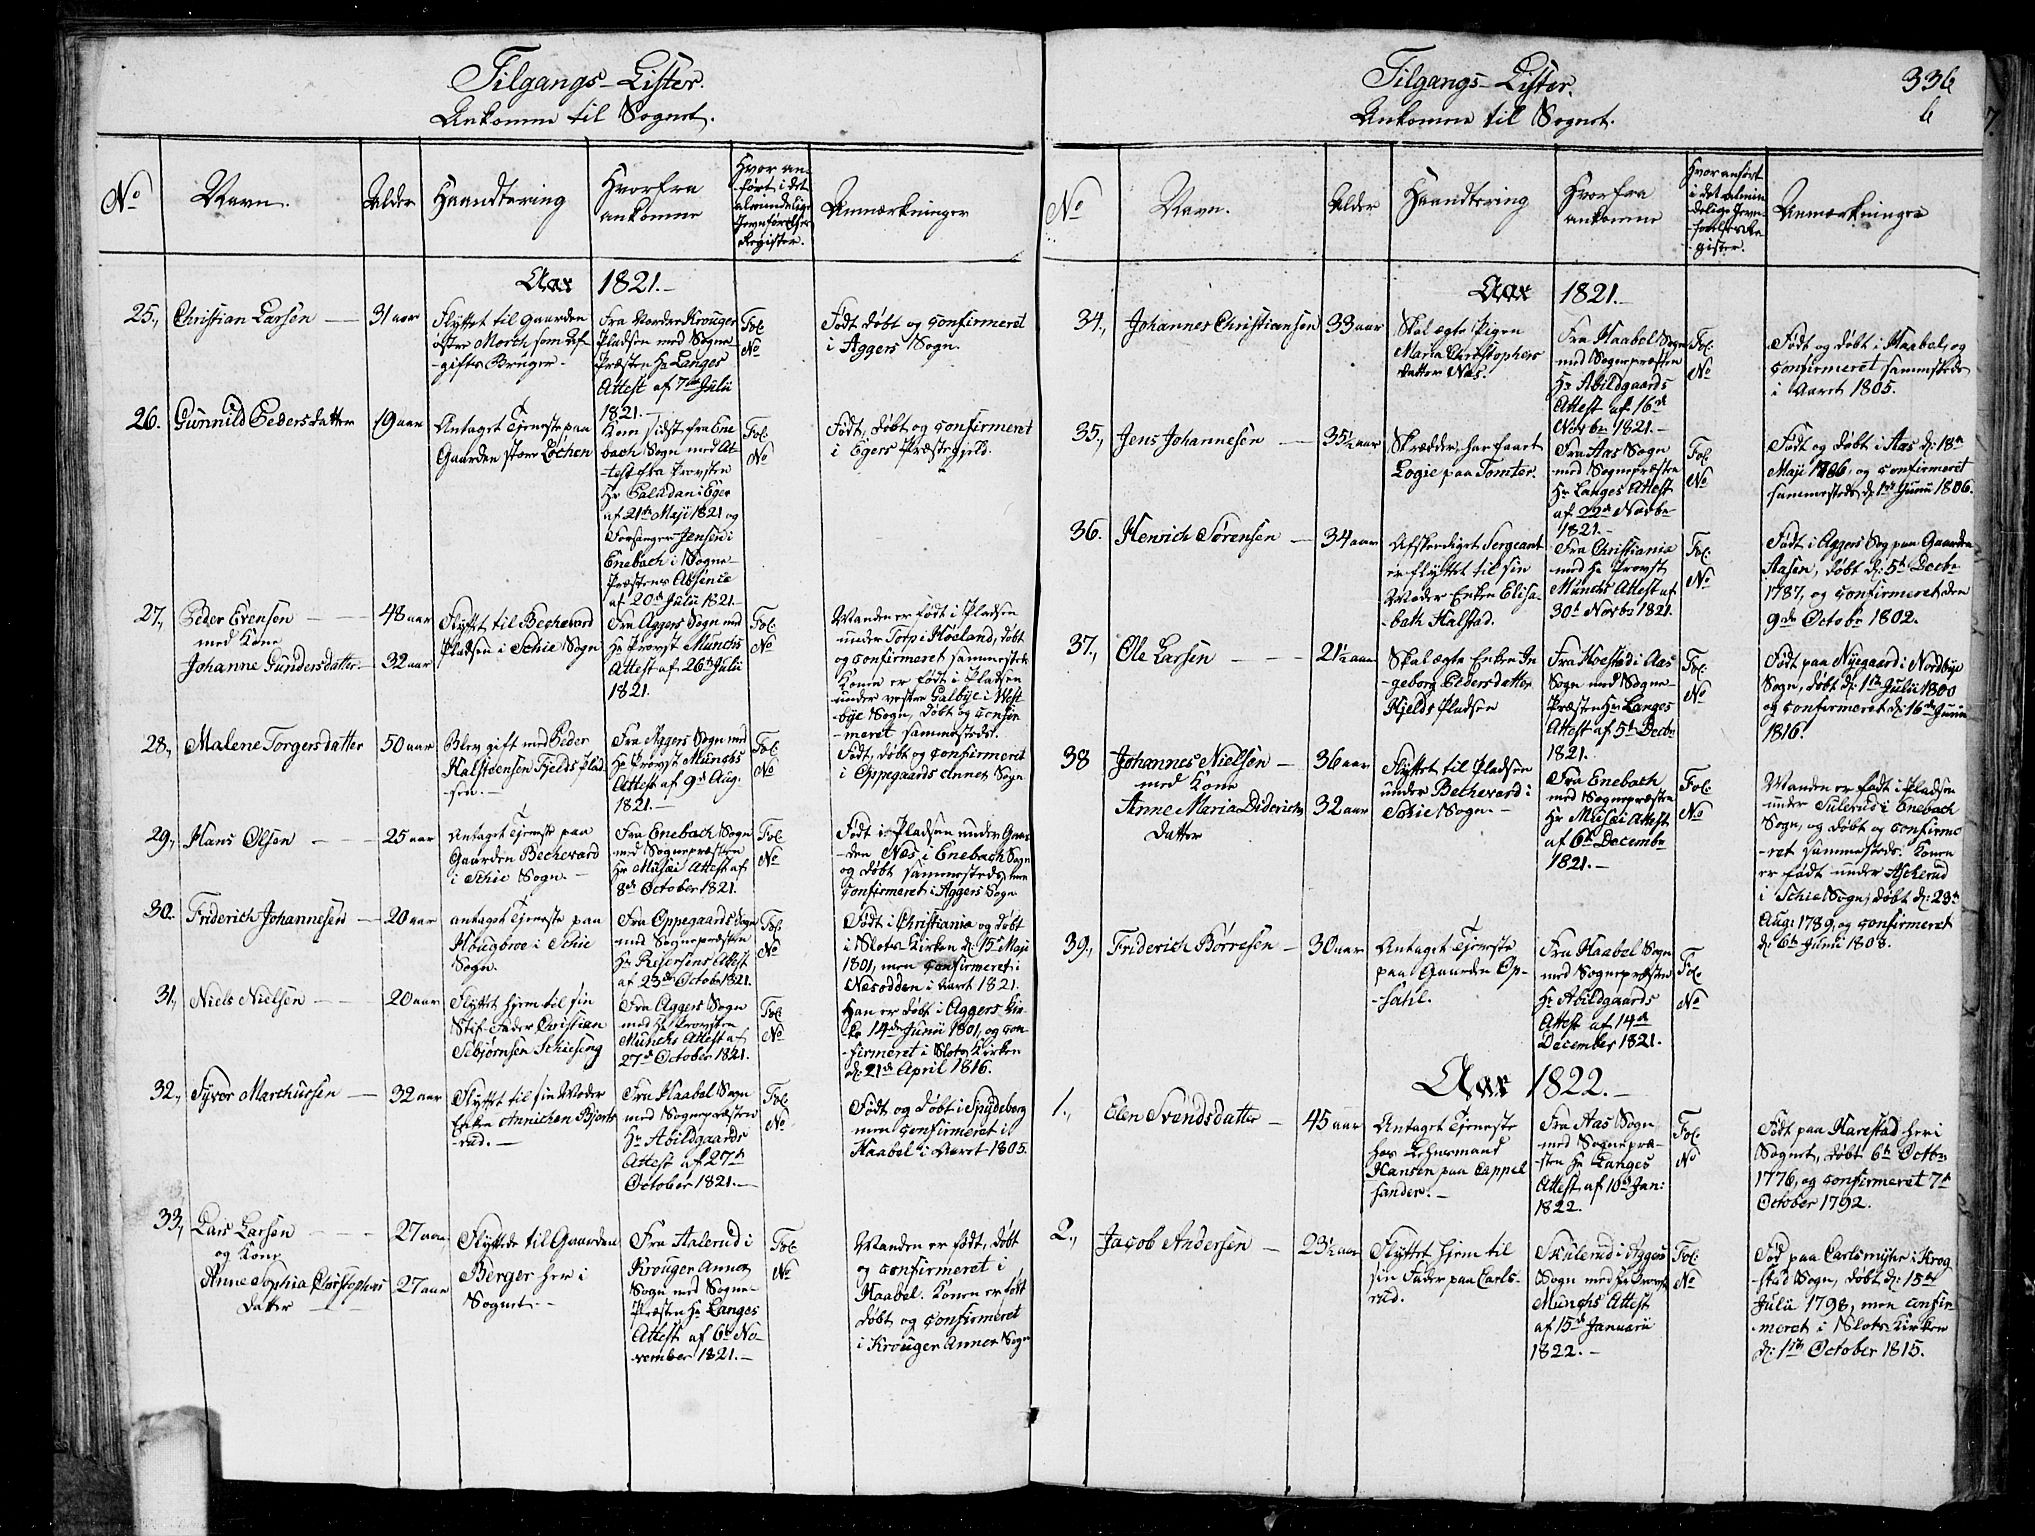 Tilgangs-Lister.
Ankomne til Sognet.
No
Navn.
Alder
Haandtering
Hvorfra
ankomne
Hvor an-
-ført i det
almindelige
Jevnførelses
Register.
Anmærkninger
Aar 1821.-
25.,
Christian Larsen
31 aar
Flyttet til Gaarden
øster Morch som Af-
-gifts Bruger-
Fra Norder Krouger
Pladsen med Sogne-
Præsten Hr Langes
Attest af 7de Julii
1821.-
Fol.
No
Født døbt og confirmeret
i Aggers Sogn.
26.
Gunnild Pedersdatter
19 aar
Antaget Tjeneste paa
Gaarden store Løchen
Kom sidst fra Ene
bach Sogn med At-
-test fra Provsten
Hr Paludan i Eger
af 21de Maji 1821 og
Forsanger Jensen i
Enebach i Sogne-
Præstens Absence
af 20de Julii 1821.-
Fol.
No
Født, døbt og confirmeret
i Egers Præstegjeld.
27.,
Peder Evensen
med Kone
Johanne Gundersdatter.
48 aar
32 aar
Flyttet til Bechevard
Pladsen i Schie Sogn
Fra Aggers Sogn med
Hr Provst Munchs
Attest af 26de Julii
1821.
Fol.
No
Manden er født i Pladsen
under Torp i Høeland, døbt
og confirmeret sammesteds
Konen er født i Pladsen
under vester Galbye i West-
bye Sogn, døbt og confir-
-meret sammesteds.
28.,
Malene Torgersdatter
50 aar
Blev gift med Peder
Halsteensen Fjelds Plad-
sen.-
Fra Aggers Sogn med
Hr Provst Munchs
Attest af 9de Aug:
1821.-
Fol.
No
Født, døbt og confirmeret
i Oppegaards Annex Sogn
29.,
Hans Olsen
25 aar
Antaget Tjeneste paa
Gaarden Bechevard
i Schie Sogn.-
Fra Enebach Sogn
med Sognepræsten
Hr Musæi Attest af
8de October 1821.
Fol.
No
Født i Pladsen under Gaar-
-den Næs i Enebach Sogn
og døbt sammesteds, men
confirmeret i Aggers Sogn
30.
Friderich Johannesen
20 aar
antaget Tjeneste paa
Hougbroe i Schie
Sogn.
Fra Oppegaards Sogn
med Sognepræsten
Attest
af 23de October 1821.
Fol.
No
Født i Christiania og døbt
i Slots Kirken d: 15 Maji
1801, men confirmeret i
Nesodden i Aaret 1821.
31.,
Niels Nielsen
20 aar
Flyttet hjem til sin
Stif-Fader Christian
Fra Aggers Sogn
med Hr Provsten
Munchs Attest af
27de October 1821.
Fol.
No
Han er døbt i Aggers Kir-
ke 14de Junii 1801, og con-
-firmeret i Slots Kirken
d: 21de April 1816.
32.,
Syver Marthinsen
32 aar
Flyttet til sin Moder
Enken Annichen Bjørke-
-rud.-
Fra Haabøl Sogn
med Sognepræsten
Hr Abildgaards
Attest af 27de
October 1821.-
Fol.
No
Født og døbt i Spydeberg
men confirmeret i
Haabøl i Aaret 1805.
33.,
Lars Larsen
og Kone
Anne Sophia Christophers
datter
27 aar
27 aar
Flyttede til Gaarden
Berger her i
Sognet.-
Fra Aalerud i
Krouger Annex
Sogn med Sogne-
Præsten Hr Langes
Attest af 6te No-
vember 1821.-
Fol.
No
Manden er født, døbt
og confirmeret i
Haabøl. Konen er født
døbt og confirmeret
i Krouger Annex Sogn
Tilgangs-Lister.
Ankomne til Sognet.
336
b
No
Navn.
Alder
Haandtering
Hvorfra
ankomne
Hvor anført
i det almin-
delige Jevn-
førelses Re-
gister.
Anmærkninger
Aar 1821.-
34.,
Johannes Christiansen
33 aar
Skal ægte Pigen
Maria Christophers
datter Næs.
Fra Haabøl Sogn
med Sognepræsten
Hr Abildgaards
Attest af 16de
Novbr 1821.-
Fol.
No
Født og døbt i Haabøl, og
confirmeret sammesteds
i Aaret 1805.
35.,
Jens Johannesen
35½ aar
Skrædder, har faaet
Logie paa Tomter.
Fra Aas Sogn
med Sognepræsten
Hr Langes Attest
af 22de Novbr
1821.-
Fol.
No
Født og døbt i Aas d: 18de
Maji 1786, og confirmeret
sammesteds d: 1ste Junii 1806.
36.
Henrich Sørensen
34 aar
Afskediget Sergeant
er flyttet til sin
Moder Enken Elisa-
-beth Halstad.
Fra Christiania
med Hr Provst
Munchs Attest af
30te Novbr 1821.
Fol.
No
Født i Aggers Sog paa Gaarden
Aasen, døbt d: 5te Decbr
1787, og confirmeret den
9de Octobr 1802.
37.,
Ole Larsen
21½ aar
Skal ægte Enken In-
-geborg Pedersdatter
Hjelds Pladsen
Fra Hoestad i Aas
Sogn med Sogne-
Præsten Hr Langes
Attest af 5te Decbr
1821.
Fol.
No
Født paa Nyegaard i Nordbye
Sogn, døbt d: 1ste Julii 1800
og confirmeret d: 16de Junii
1816
38
Johannes Nielsen
med Kone
Anne Maria Diderichs
datter
36 aar
32 aar
Flyttet til Pladsen
under Bechevard i
Schie Sogn.-
Fra Enebach
med Sognepræsten
Hr Musæi Attest
af 6te Decembr
1821.-
Fol.
No
Manden er født i Pladsen
under Sulerud i Enebach
Sogn, og døbt og confirme-
-ret sammesteds. Konen
er født under Askerud
i Schie Sogn, døbt d: 23de
Aug: 1789, og confirmeret
d: 6te Junii 1808.
39.,
Friderich Børresen
30 aar
Antaget Tjeneste
paa Gaarden Op-
-sahl.
Fra Haabøl Sogn
med Sognepræsten
Hr Abildgaards
Attest af 14de
December 1821.
Fol.
No
Aar 1822.-
1.,
Elen Svendsdatter
45 aar
Antaget Tjeneste
hos Lehnsmand
Hansen paa Cappel
sanden.-
Fra Aas Sogn
med Sognepræ-
-sten Hr Langes
Attest af 10de Jan:
1822.
Fol.
No
Født paa Harestad her i
Sognet, døbt 6te Octbr
1776, og confirmeret 7de
October 1792.
2.,
Jacob Andersen
23½ aar
Flyttet hjem til
sin Fader paa Carls-
rud.
Skulerud i Aggers
Sogn med Hr Provst
Munchs Attest
af 15de Januarii
1822.-
Fol.
No
Fød paa Carlsmyhr i Krog-
-stad Sogn, døbt d: 15de
Julii 1798, men confir-
-meret i Slots Kirken
d: 1ste October 1815.